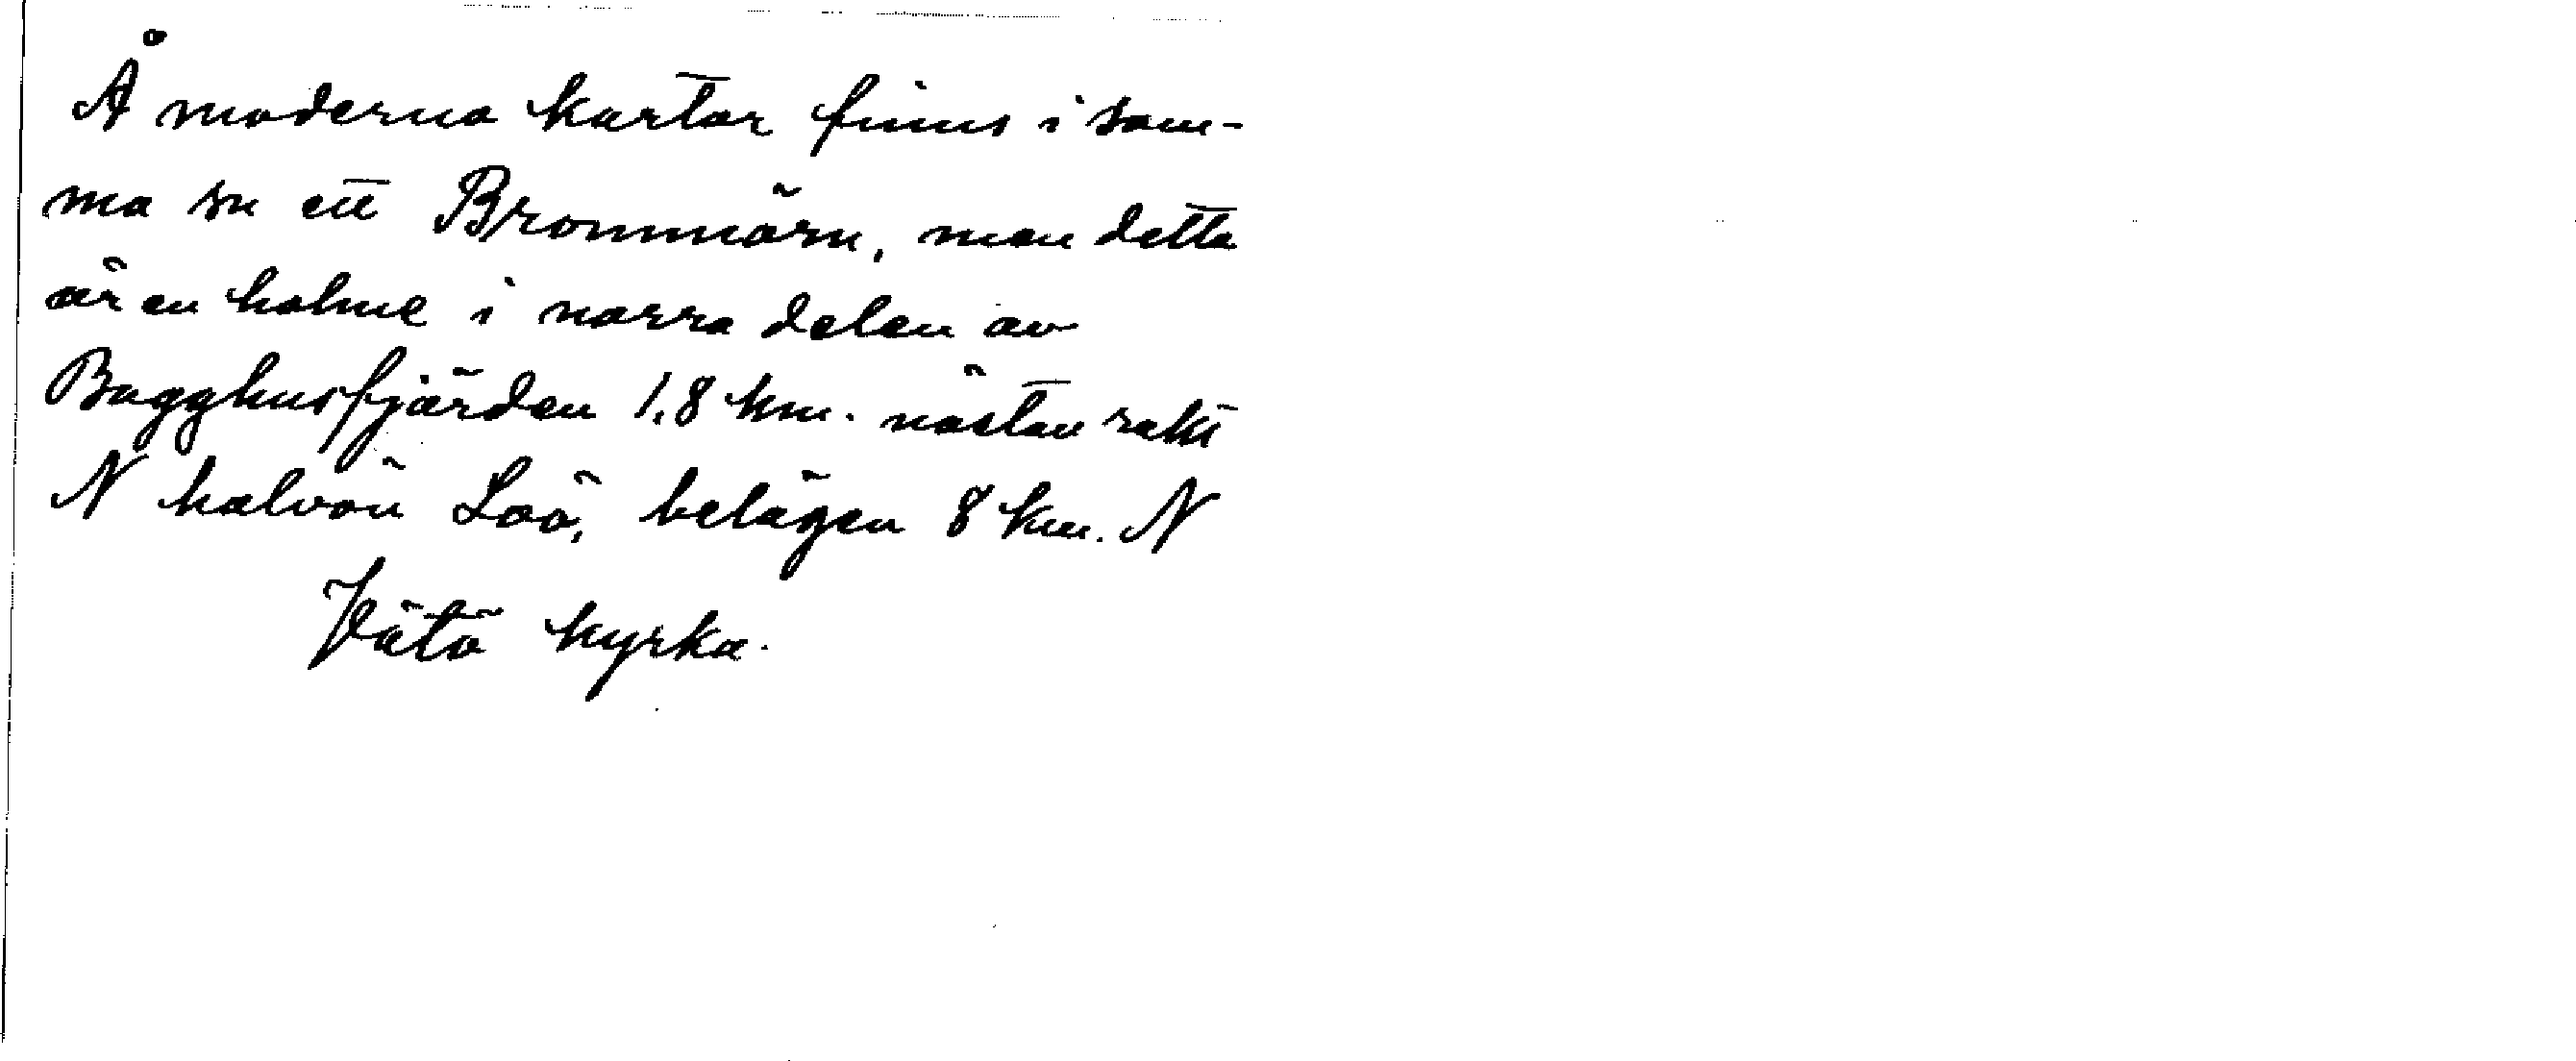 Å moderna kartor finns i sam-
ma sn ett Brommörn, men detta
är en holme i norra delen av
Bagghusfjärden 1,8 km. nästan rakt
N halvön Loö, belägen 8 km. N
Vätö kyrka.